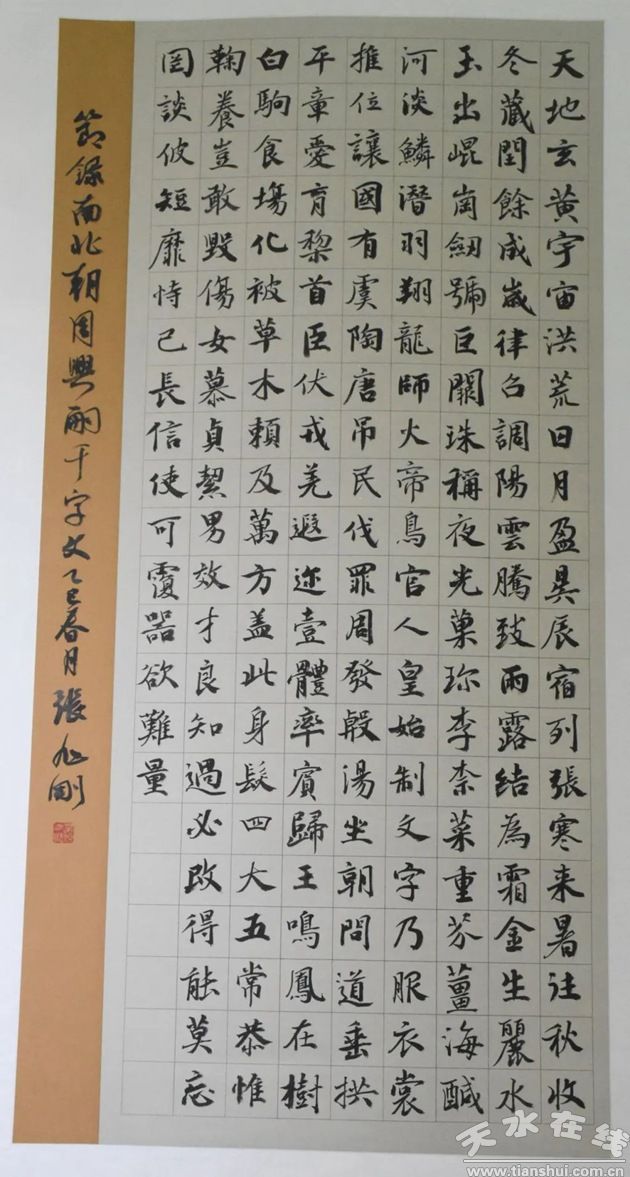 天地玄黃宇宙洪荒日月盈昃辰宿列張寒来暑往秋收
冬藏閏餘成歲律召調陽雲騰致雨露結為霜金生麗水
玉出崐崗劒號巨闕珠稱夜光菓珎李柰菜重芥薑海醎
河淡鱗潛羽翔龍師火帝鳥官人皇始制文字乃服衣裳
推位讓國有虞陶唐吊民伐罪周發殷湯坐朝問道垂拱
平章愛育黎首臣伏戎羌遐迩壹體率賓歸王鳴鳳在樹
白駒食場化被草木賴及萬方盖此身髮四大五常恭惟
鞠養豈敢毀傷女慕貞絜男效才良知過必改得能莫忘
罔談彼短靡恃己長信使可覆器欲難量
節錄南北朝周興嗣千字文乙巳春月張旭剛
天水在线
www.tianshui.com.cn